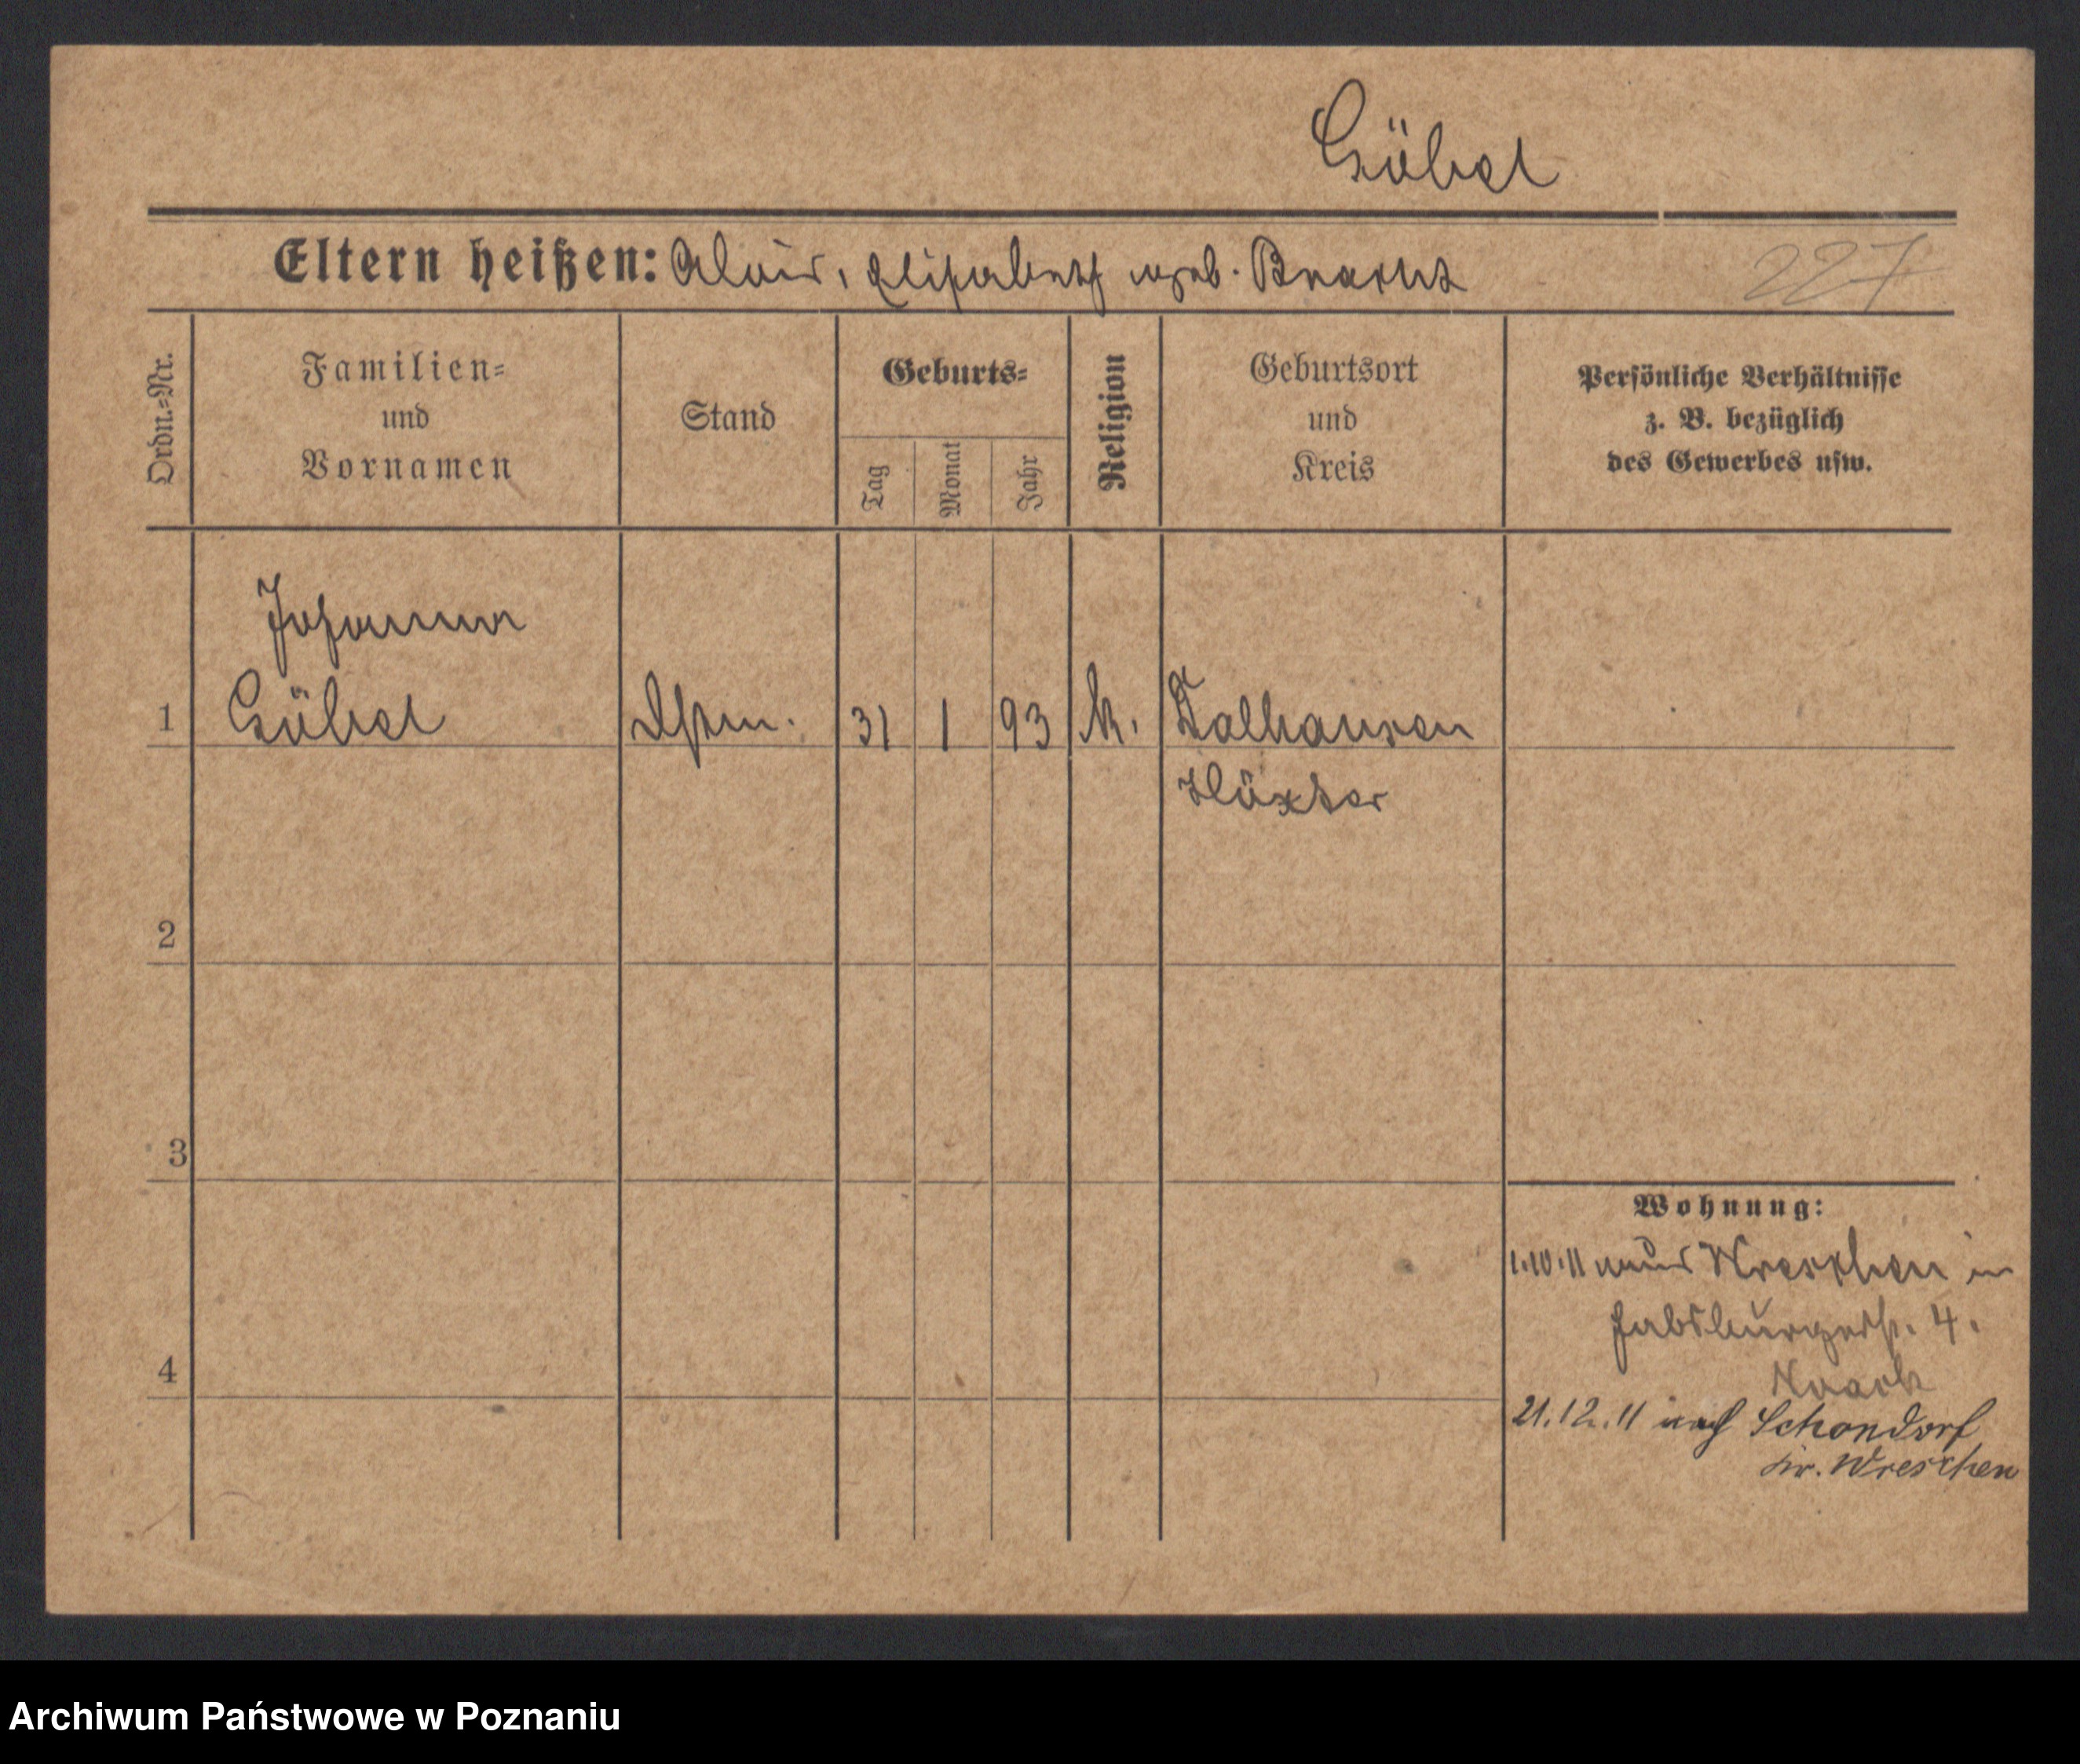 Göbel
Eltern heißen: Alois, Elisabeth geb. Bracht
227
Ordn.=Nr.
Familien=
und
Vornamen
Stand
Geburts=
Tag
Monat
Jahr
Religion
Geburtsort
und
Kreis
Persönliche Verhältnisse
z. B. bezüglich
des Gewerbes usw.
Johanna
1 Göbel 31 1 93 k. Dalhausen
Höxter
2
3
4
Wohnung:
1.10.11 aus Wreschen in
Habsburgerstr. 4.
21.12.11 nach Schondorf
Kr. Wreschen
Archiwum Państwowe w Poznaniu